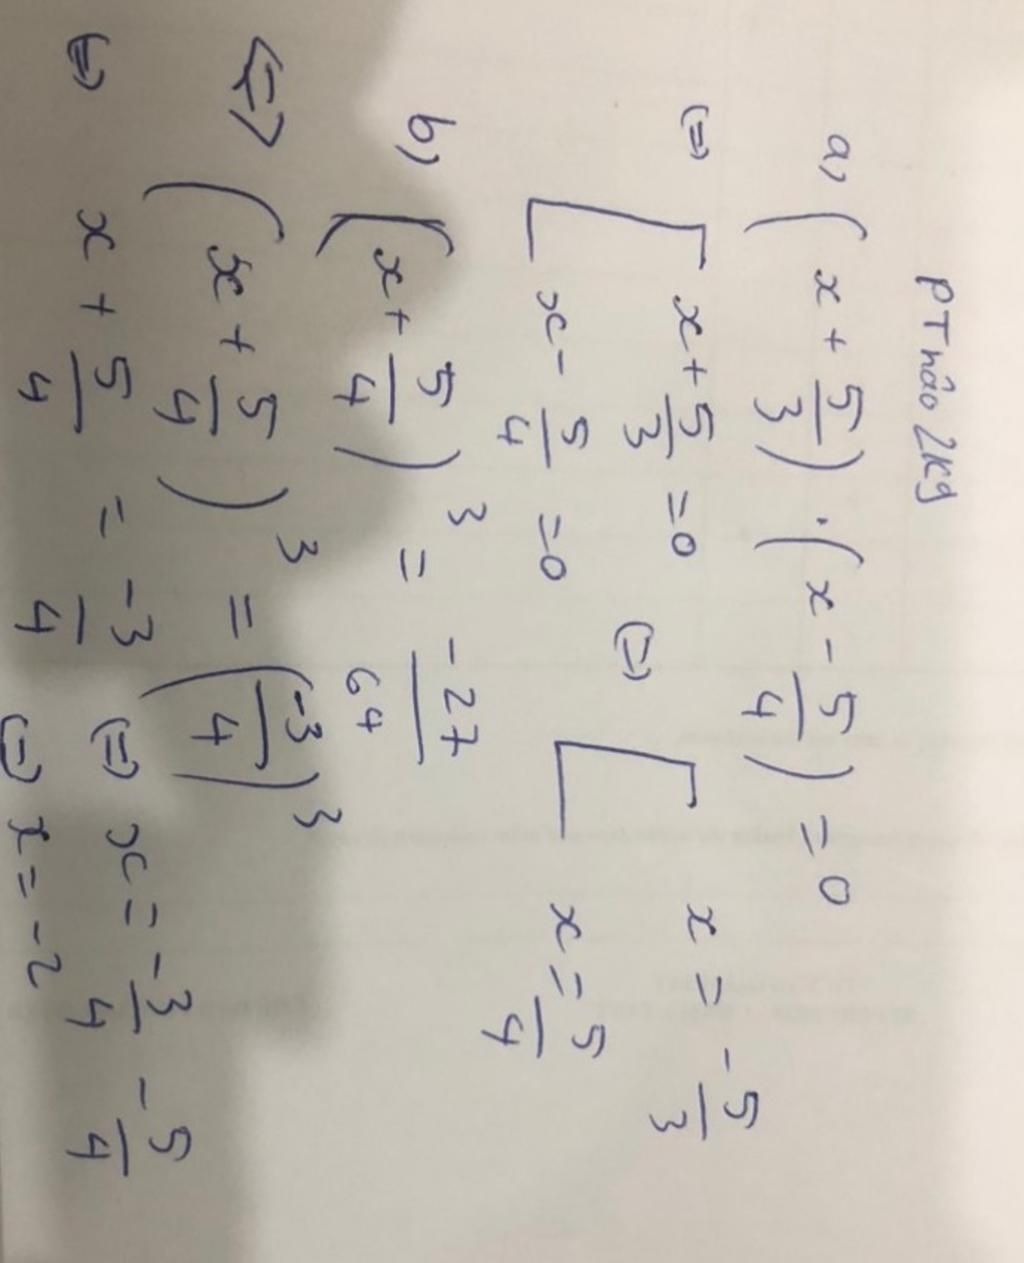 PT nào 2kg
a, (x + 5/3) . (x - 5/4) = 0
(=) [ x + 5/3 = 0 (=) [ x = -5/3
x - 5/4 = 0 x = 5/4
b, (x + 5/4)³ = -27/64
<=> (x + 5/4)³ = (-3/4)³
(=) x + 5/4 = -3/4 (=) x = -3/4 - 5/4
(=) x = -2